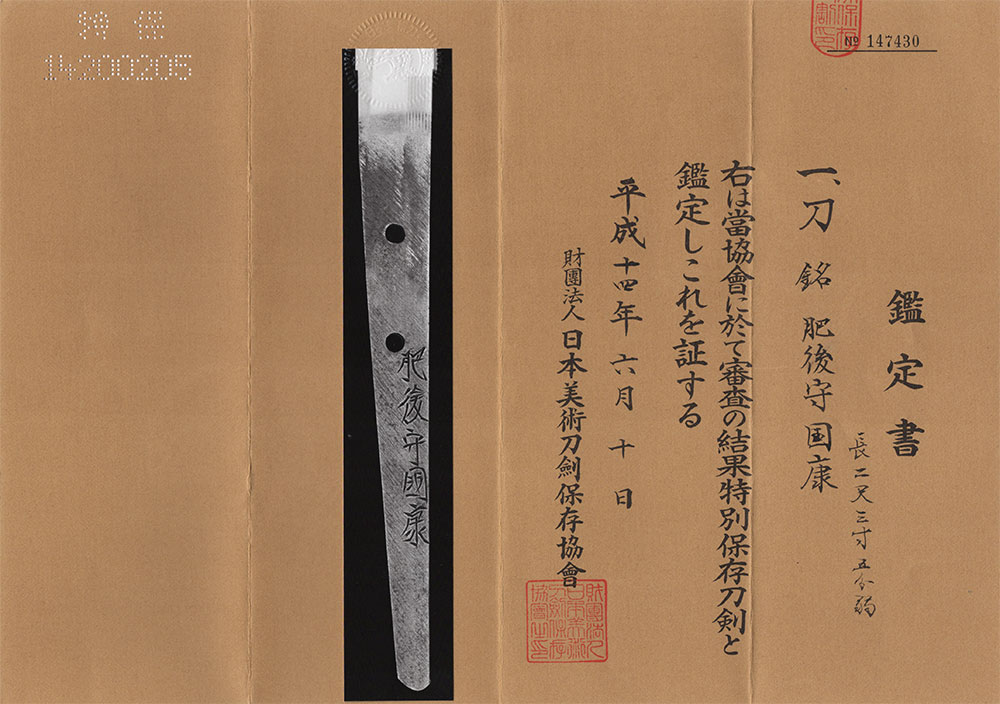 № 147430
鑑定書
一、刀 銘 肥後守国康
長二尺三寸五分弱
右は當協會に於て審査の結果特別保存刀剣と
鑑定しこれを証する
平成十四年六月十日
財團法人日本美術刀劍保存協會
財團法人
日本美術
刀劍保存
協會之印
肥後守國康
特保
14200205